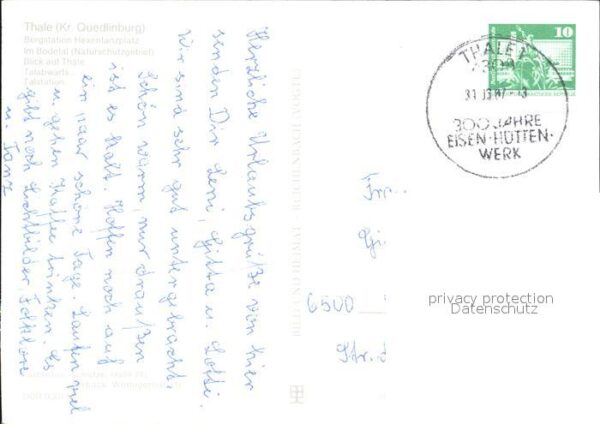 Thale (Kr. Quedlinburg)
Bergstation Hexentanzplatz
im Bodetal (Naturschutzgebiet)
Blick auf Thale
Talabwärts
Talstation
Herzliche Urlaubsgrüße von hier
senden Dir Leni, Gitta u. Lotti.
Wir sind sehr gut untergebracht.
Schön warm, nur draußen
ist es kalt. Hoffen noch auf
ein paar schöne Tage. Laufen viel
u. gehen Kaffee trinken. Es
gibt noch Lichtbilder, Folklore
u. Tanz
10
THALE 1
4308
300 JAHRE
EISEN-HÜTTEN-
WERK
6500
Str.
privacy protection
Datenschutz